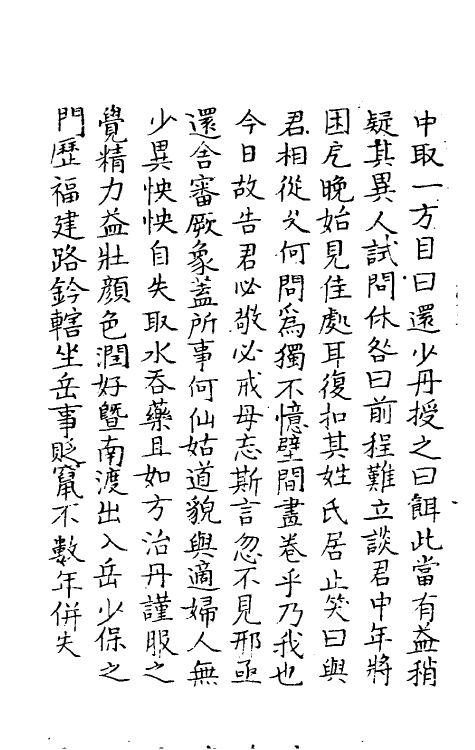 中取一方目曰還少丹授之曰餌此當有益稍
疑其異人試問休咎曰前程難立談君中年將
困戹晚始見佳處耳復扣其姓氏居止笑曰與
君相從久何問爲獨不憶壁間畫卷乎乃我也
今日故告君必敬必戒毋忘斯言忽不見邢亟
還舍審厥象蓋所事何仙姑道貌與適婦人無
少異怏怏自失取水吞藥且如方治丹謹服之
覺精力益壯顔色潤好曁南渡出入岳少保之
門歷福建路鈐轄坐岳事貶竄不數年併失